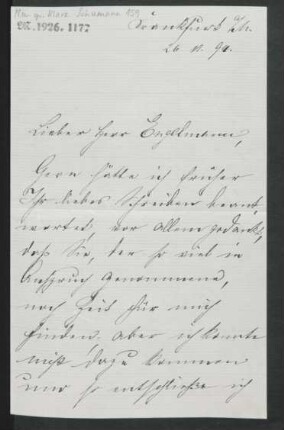 DN.1926.1177
Frankfurt a/M.
26. 11. 90.
Lieber Herr Engelmann,
Gern hätte ich früher
Ihr liebes Schreiben beant,
wortet, vor Allem gedankt,
daß Sie, der so viel in
Anspruch Genommene,
noch Zeit für mich
finden. Aber ich konnte
nicht dazu kommen
und so entschließe ich